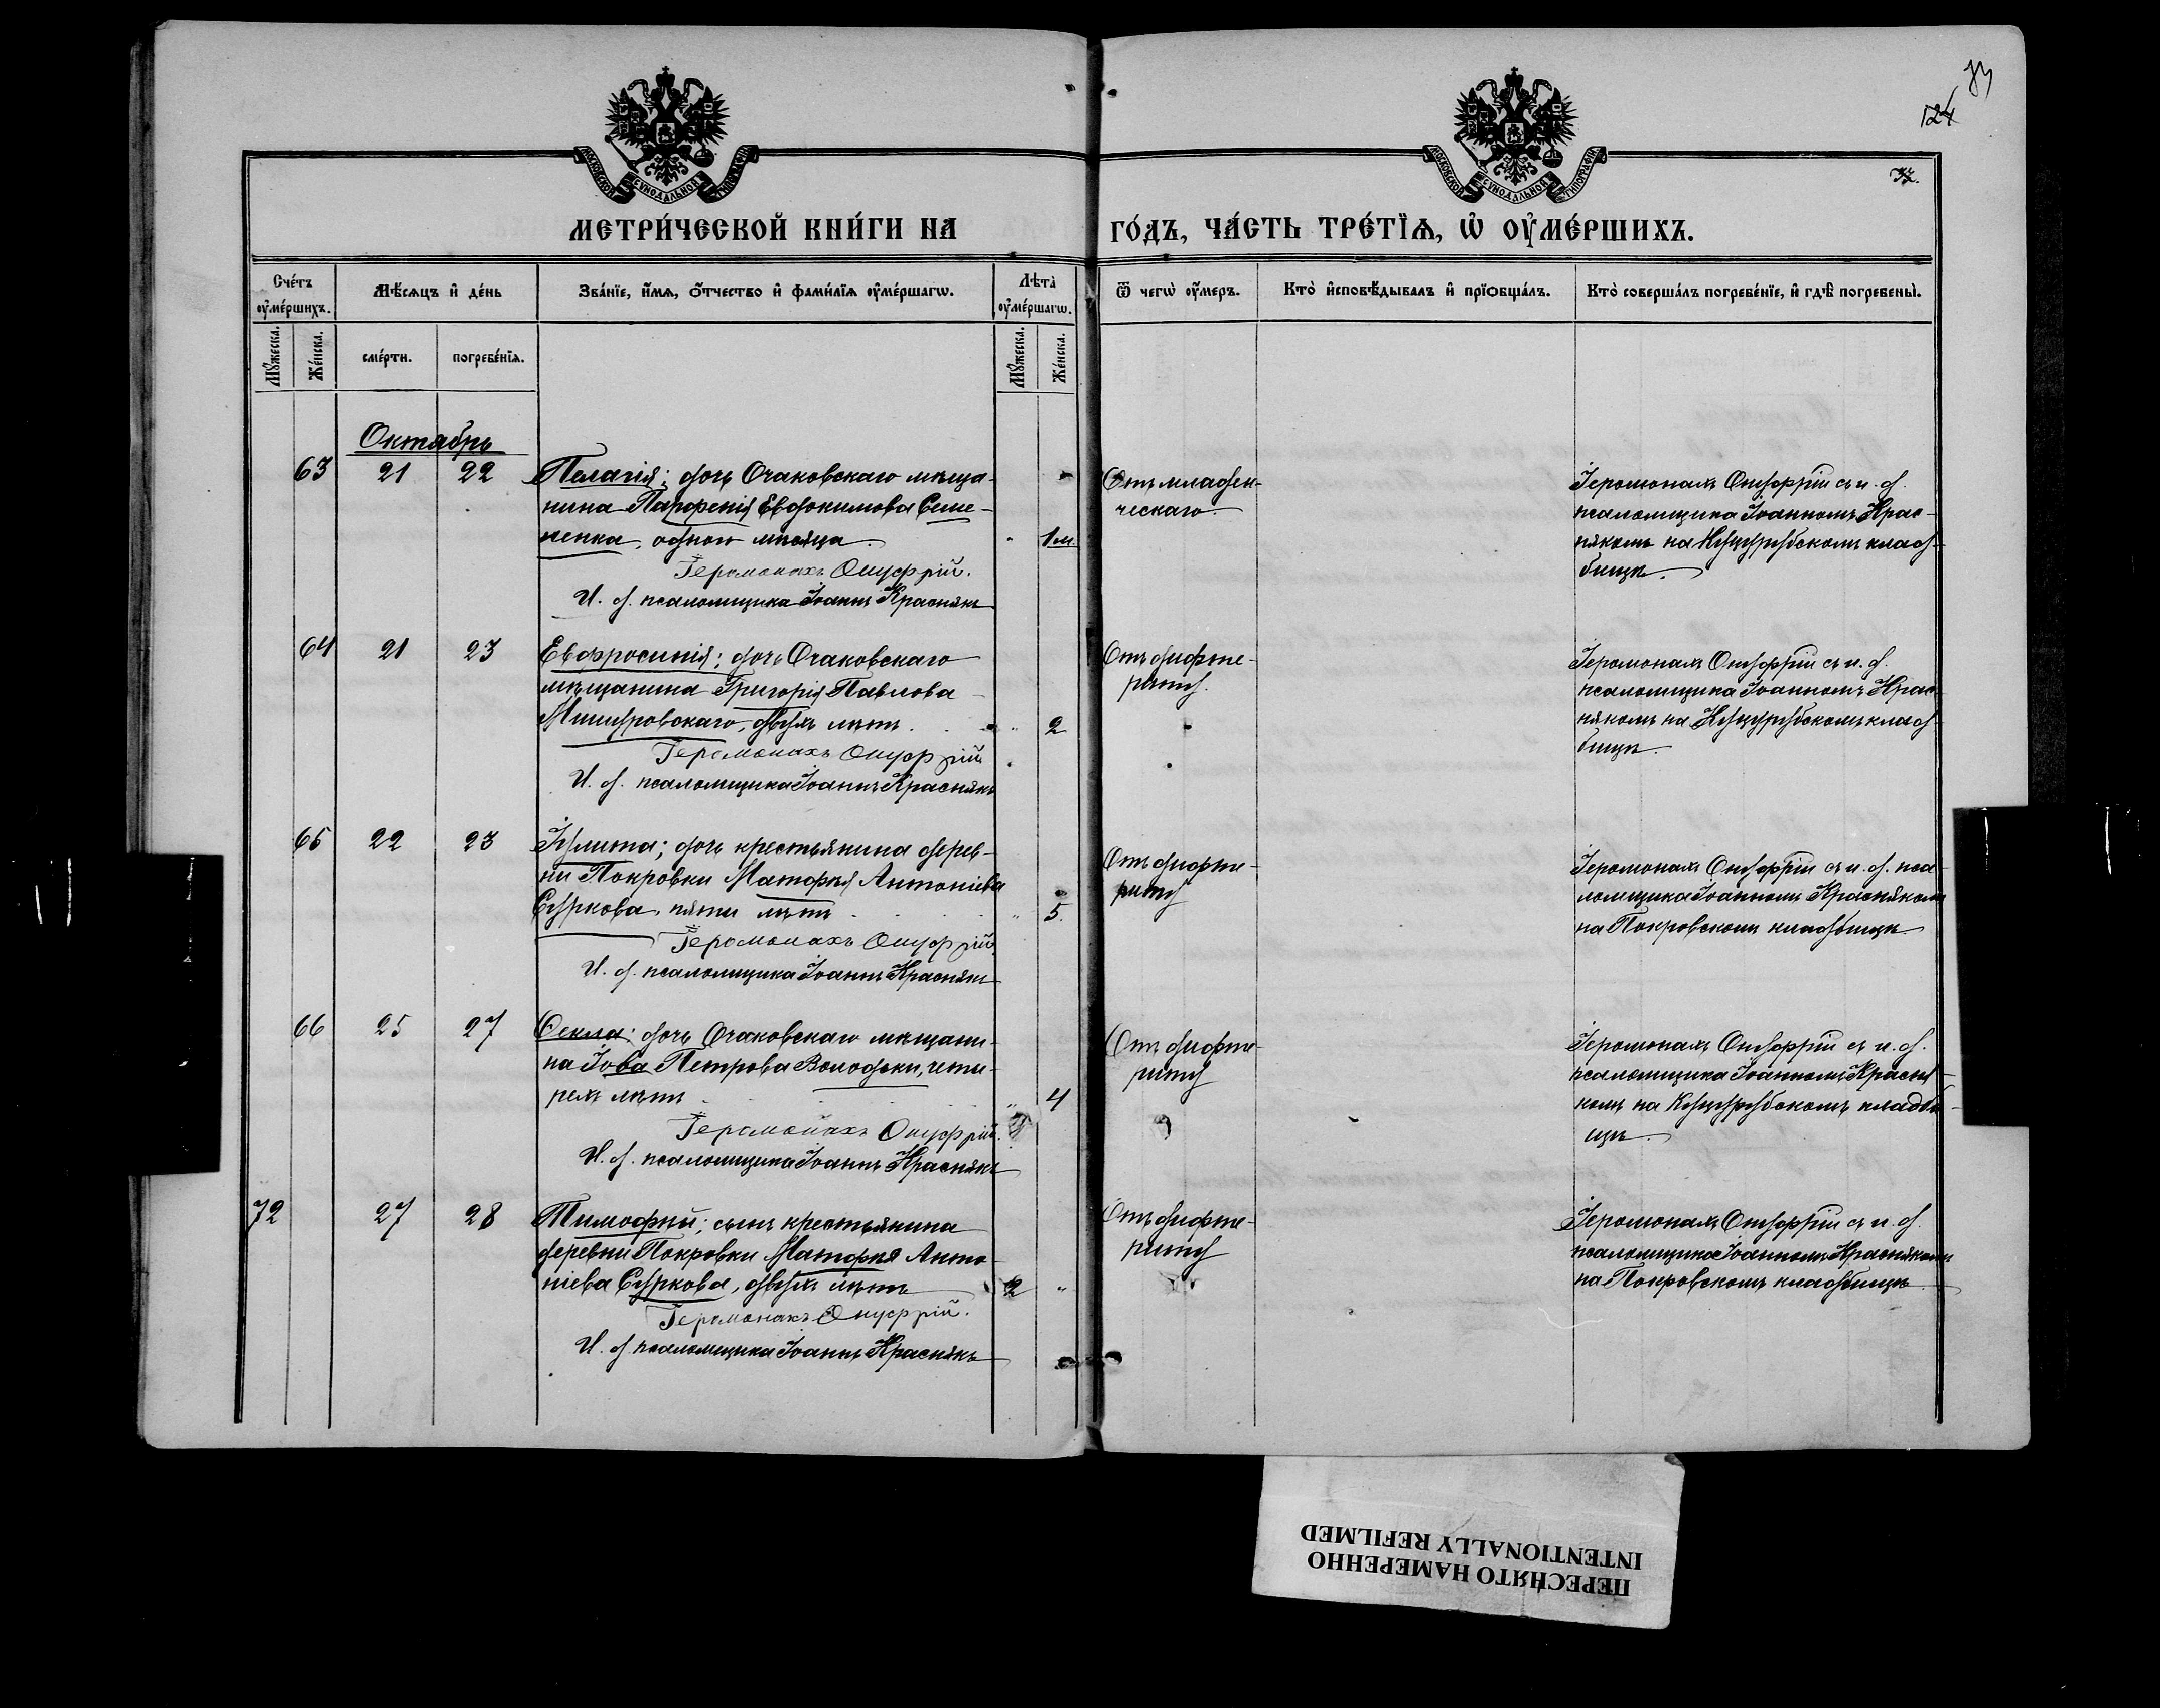 73
124
37.
МОСКОВСКОЙ СѴНОДАЛЬНОЙ ТИПОГРАФІИ
МОСКОВСКОЙ СѴНОДАЛЬНОЙ ТИПОГРАФІИ
МЕТРИ́ЧЕСКОЙ КНИ́ГИ НА
ГО́ДЪ, ЧА́СТЬ ТРЕ́ТЇѦ, Ѡ҆ ОУ҆МЕ́РШИХЪ.
Сче́тъ оу҆ме́ршихъ.
Мѣ́сѧцъ и҆ де́нь
Зва́нїе, и҆́мѧ, ѻ҆́тчество и҆ фами́лїѧ оу҆ме́ршагѡ.
Лѣта̀ оу҆ме́ршагѡ.
Ѿ чегѡ̀ оу҆́меръ.
Кто̀ и҆сповѣ́дывалъ и҆ прїѻбща́лъ.
Кто̀ соверша́лъ погребе́нїе, и҆ гдѣ̀ погребены̀.
Мꙋ́жеска.
Же́нска.
сме́рти.
погребе́нїѧ.
Мꙋ́жеска.
Же́нска.
Октябрь
63 21 22 Пелагія; дочь Очаковскаго мѣща-
нина Парфенія Евдокимова Семе-
ненка, одного мѣсяца. " 1 м.
Іеромонахъ Онуфрій.
И. д. псаломщика Іоаннъ Краснякъ
Отъ младен-
ческаго.
Іеромонахъ Онуфрій съ и. д.
псаломщика Іоанномъ Крас-
някомъ на Куцурубскомъ клад-
бищѣ.
64 21 23 Евфросинія; дочь Очаковскаго
мѣщанина Григорія Павлова
Мишуровскаго, двухъ лѣтъ. " 2
Іеромонахъ Онуфрій
И. д. псаломщика Іоаннъ Краснякъ
Отъ дифте-
риту.
Іеромонахъ Онуфрій съ и. д.
псаломщика Іоанномъ Крас-
някомъ на Куцурубскомъ клад-
бищѣ.
65 22 23 Іулита; дочь крестьянина дерев-
ни Покровки Матфея Антоніева
Суркова, пяти лѣтъ " 5.
Іеромонахъ Онуфрій
И. д. псаломщика Іоаннъ Краснякъ
Отъ дифте-
риту
Іеромонахъ Онуфрій съ и. д. пса-
ломщика Іоанномъ Краснякомъ
на Покровскомъ кладбищѣ.
66 25 27 Ѳекла; дочь Очаковскаго мѣщани-
на Іова Петрова Володьки, четы-
рехъ лѣтъ " 4
Іеромонахъ Онуфрій.
И. д. псаломщика Іоаннъ Краснякъ
Отъ дифте-
риту
Іеромонахъ Онуфрій съ и. д.
псаломщика Іоанномъ Красня-
комъ на Куцурубскомъ кладби-
щѣ.
72 27 28 Тимофей; сынъ крестьянина
деревни Покровки Матфея Анто-
ніева Суркова, двухъ лѣтъ 2 "
Іеромонахъ Онуфрій.
И. д. псаломщика Іоаннъ Краснякъ
Отъ дифте-
риту
Іеромонахъ Онуфрій съ и. д.
псаломщика Іоанномъ Краснякомъ
на Покровскомъ кладбищѣ.
ПЕРЕСНЯТО НАМЕРЕННО
INTENTIONALLY REFILMED